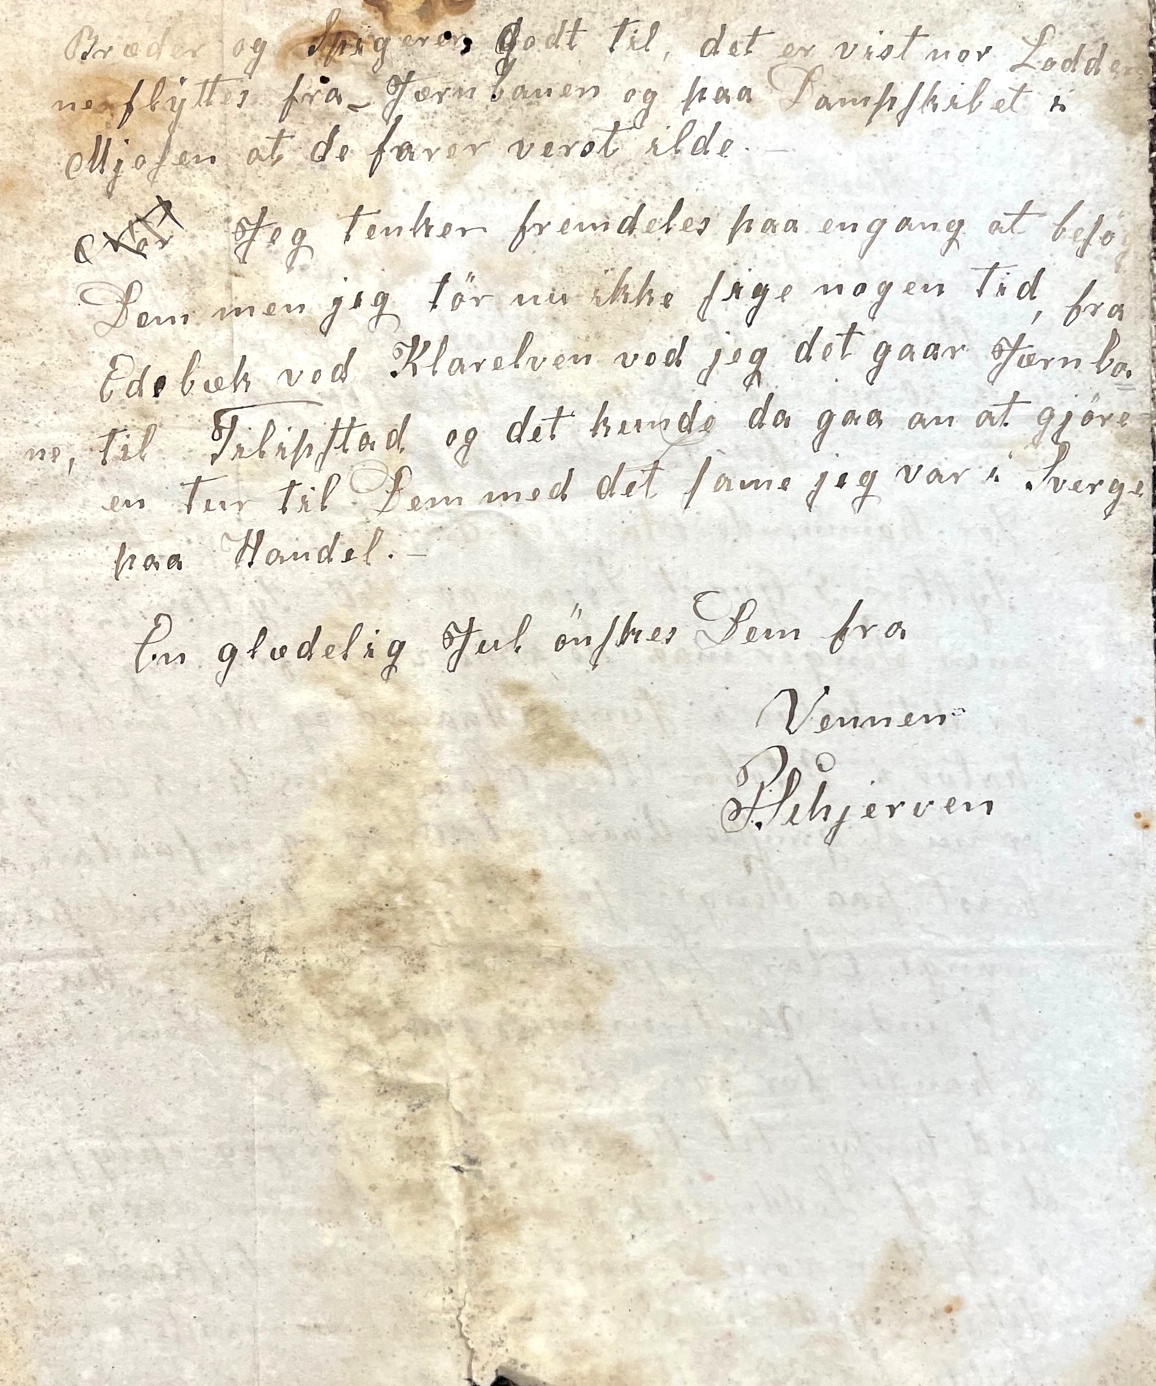 Bræder og Spigeren godt til, det er vist nor Lodde
ne flyttes fra Jærnbanen og paa Dampskibet i
Mjøsen at de farer verst ilde. —
Jeg tenker fremdeles paa engang at besög
Dem men jeg tör nu ikke sige nogen tid, fra
Edebæk ved Klarelven ved jeg det gaar Jærnba
ne, til Filipstad og det kunde da gaa an at gjöre
en tur til Dem med det same jeg var i Sverge
paa Handel. —
En glædelig Jul önskes Dem fra
Vennen
P. Schjerven